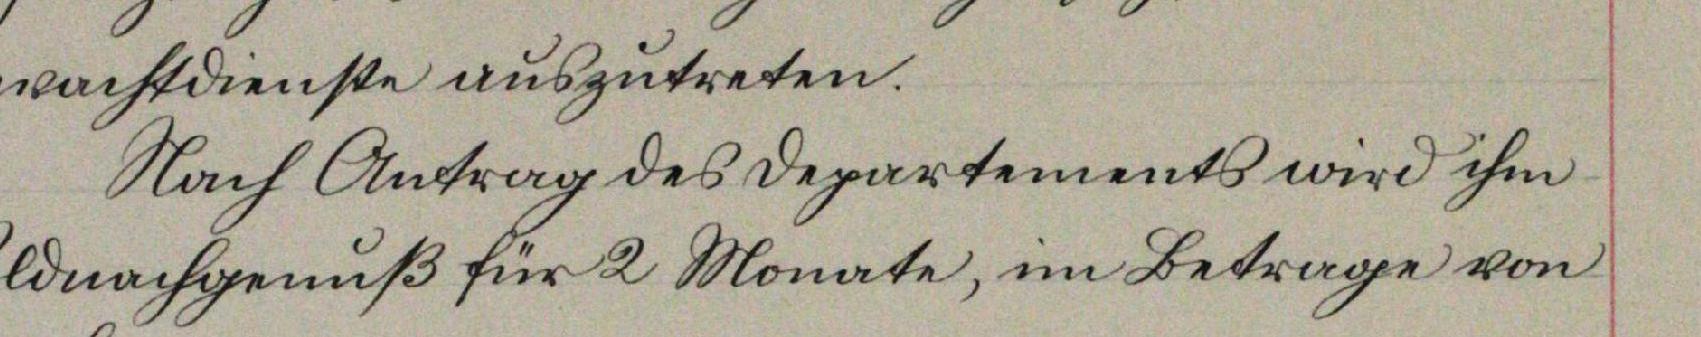 wachtdienste auszutreten.
Nach Antrag des Departements wird ihm
ldnachgenuß für 2 Monate, im Betrage von